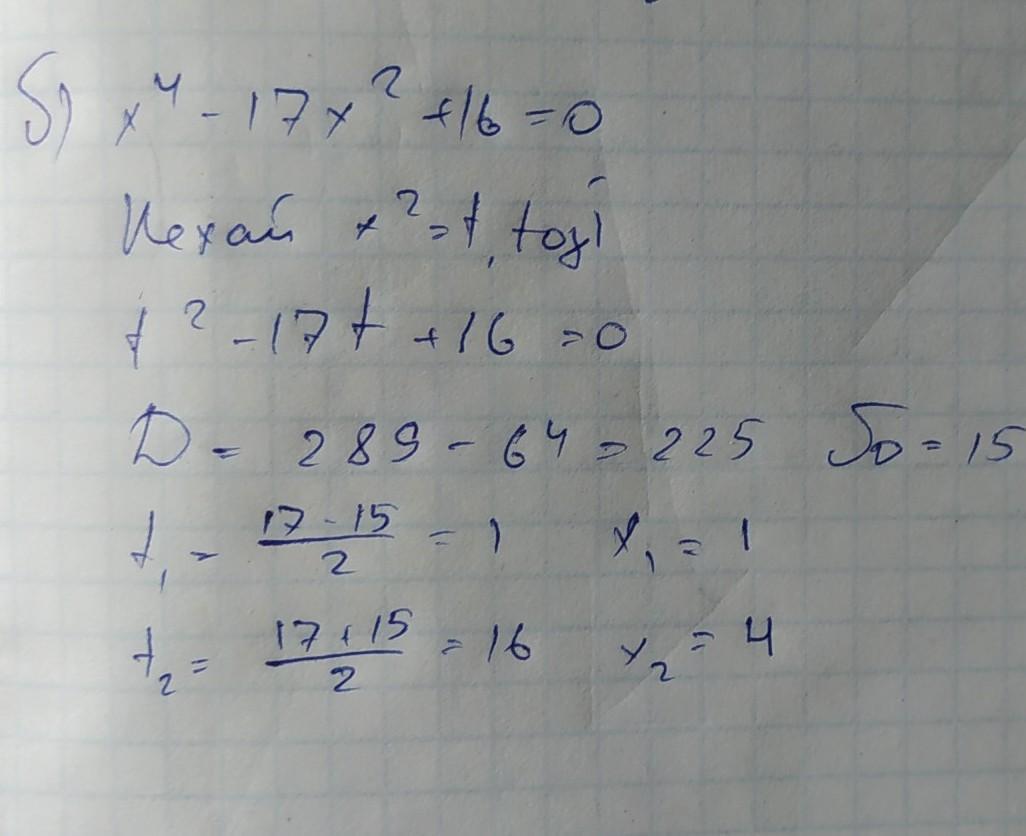 б) x⁴ - 17x² + 16 = 0
Нехай x² = t, тоді
t² - 17t + 16 = 0
D = 289 - 64 = 225 √D = 15
t₁ = (17 - 15)/2 = 1 x₁ = 1
t₂ = (17 + 15)/2 = 16 x₂ = 4